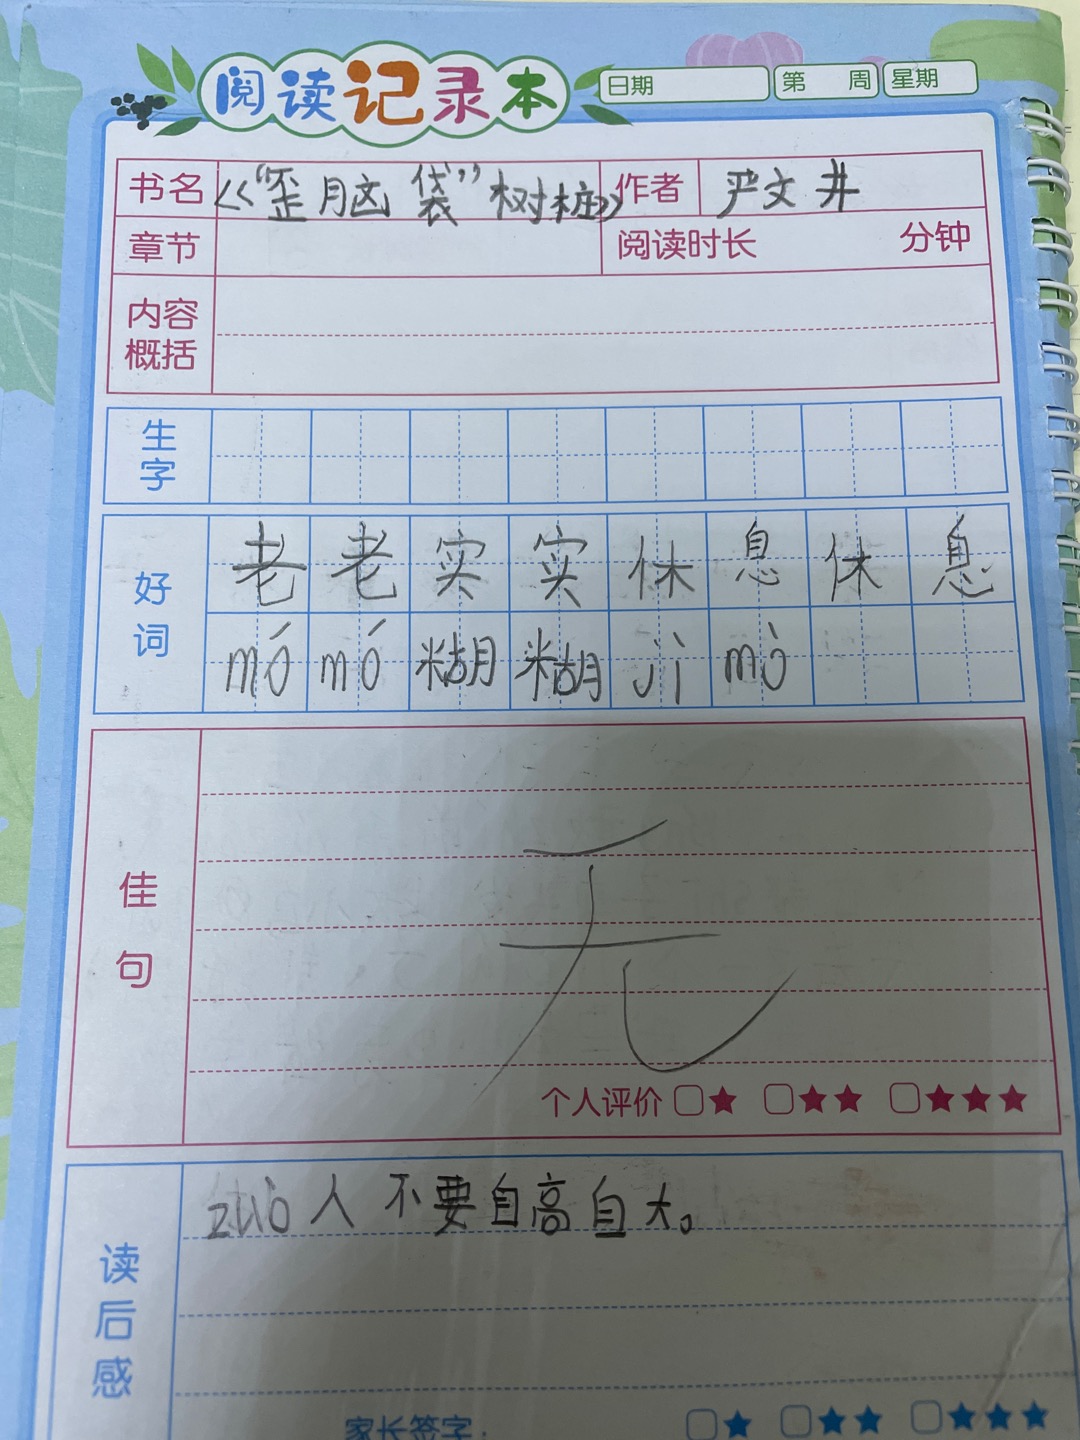 阅读记录本 日期 第 周 星期
书名 《“歪脑袋”树桩》 作者 严文井
章节 阅读时长 分钟
内容
概括
生字
好词 老老实实休息休息
mó mó 糊糊 jì mò
佳句 无
个人评价 ★ ★★ ★★★
读后感 zuò 人不要自高自大。
家长签字: ★ ★★ ★★★